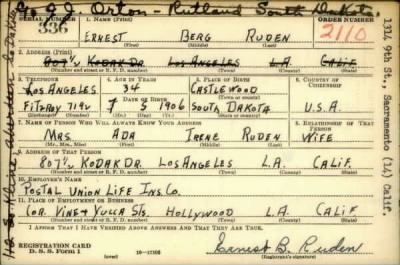 ℅ G J. Orton - Rutland South Dakota
SERIAL NUMBER 1. NAME (Print) ORDER NUMBER
336 ERNEST BERG RUDEN 2110
(First) (Middle) (Last)
2. ADDRESS (Print)
807½ KODAK DR LOS ANGELES L.A. CALIF
(Number and street or R. F. D. number) (Town) (County) (State)
3. TELEPHONE 4. AGE IN YEARS 5. PLACE OF BIRTH 6. COUNTRY OF CITIZENSHIP
LOS ANGELES 34 CASTLEWOOD
DATE OF BIRTH
FITZROY 7192 7 5 1906 SOUTH DAKOTA U.S.A.
(Exchange) (Number) (Mo.) (Day) (Yr.) (State or country)
7. NAME OF PERSON WHO WILL ALWAYS KNOW YOUR ADDRESS 8. RELATIONSHIP OF THAT PERSON
MRS ADA IRENE RUDEN WIFE
(Mr., Mrs., Miss) (First) (Middle) (Last)
9. ADDRESS OF THAT PERSON
807½ KODAK DR. LOS ANGELES L.A. CALIF.
(Number and street or R. F. D. number) (Town) (County) (State)
10. EMPLOYER'S NAME
POSTAL UNION LIFE INS. CO.
11. PLACE OF EMPLOYMENT OR BUSINESS
COR. VINE & YUCCA STS. HOLLYWOOD L.A. CALIF
(Number and street or R. F. D. number) (Town) (County) (State)
I AFFIRM THAT I HAVE VERIFIED ABOVE ANSWERS AND THAT THEY ARE TRUE.
REGISTRATION CARD
D. S. S. Form 1 (over) 16-17105 Ernest B. Ruden
(Registrant's signature)
1314 9th St., Sacramento (14) Calif.
Aberdeen So Dak